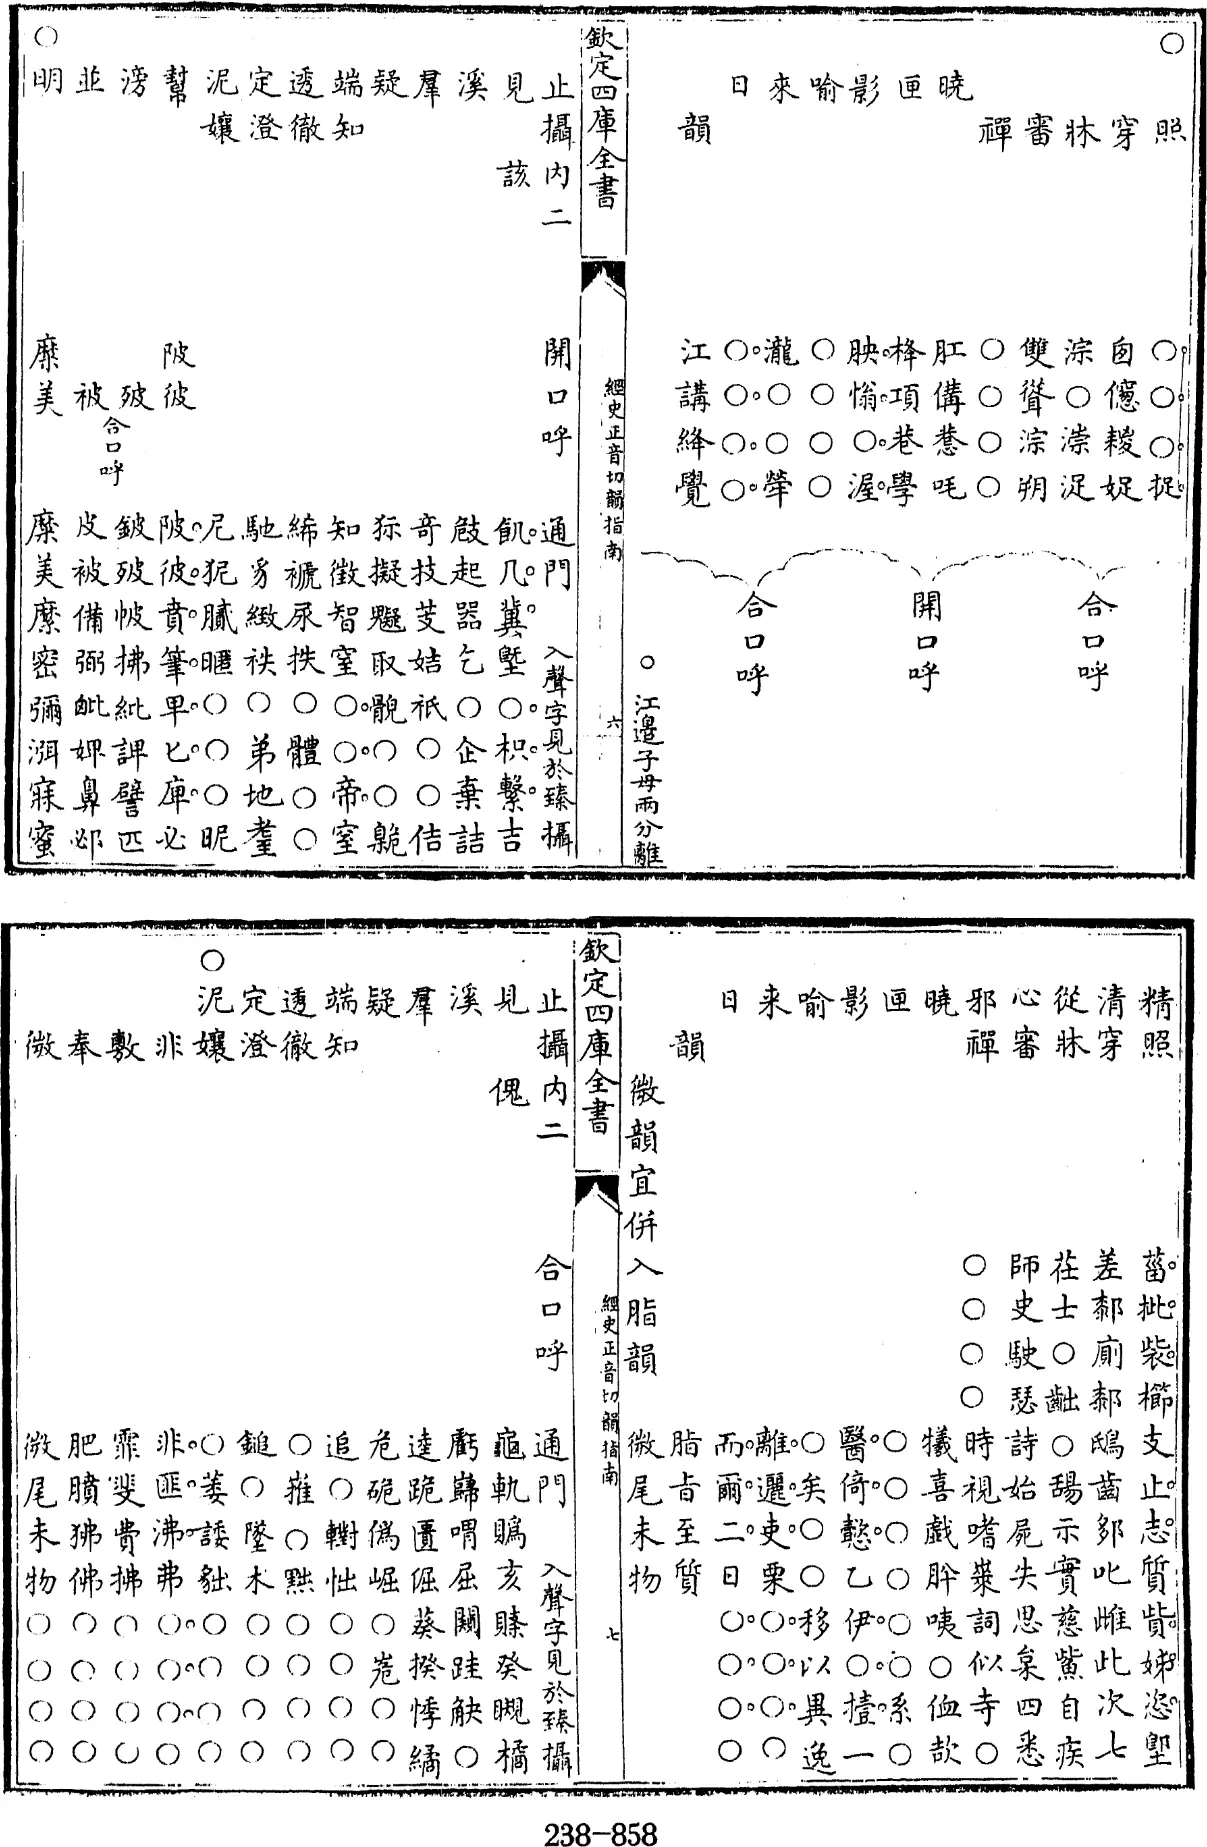 ○
照 ○○○捉
穿 囱傯 娖
牀 淙○漴浞
審 雙聳淙朔
禪 ○○○○
曉 肛傋戅吒
匣 栙項巷學
影 胦慃○渥
喻 ○○○○
來 瀧○○犖
日 ○○○○
韻 江講絳覺
合口呼
開口呼
合口呼
○江邊子母兩分離
欽定四庫全書 經史正音切韻指南 六
止攝内二 開口呼 通門 入聲字見於臻攝
見 該 飢几冀曁○枳繫吉
溪 敧起器乞○企棄詰
羣 奇技芰姞祇○○佶
疑 狋擬魕耴 ○○
端知 知徵智窒○○帝窒
透徹 絺褫尿抶○體○○
定澄 馳豸緻秩○弟地耋
泥孃 尼狔膩暱○○○昵
幫 陂彼 陂彼賁筆卑匕庳必
滂 破 鈹破帔拂紕諀譬匹
並 被 合口呼 皮被備弼毗婢鼻邲
○明 糜美 糜美縻密彌渳寐蜜
精照 菑批裝櫛支止志質貲姊恣堲
清穿 差剺廁剺鴟齒 叱雌此次七
從牀 茬士○齜○舓示實慈紫自疾
心審 師史駛瑟詩始屍失思枲四悉
邪禪 ○○○○時視嗜 詞似寺○
曉 犧喜戲肸咦○侐欯
匣 ○○○○○○系○
影 醫倚懿乙伊○撎一
喻 ○矣○○移以異逸
來 離邐吏栗○○○○
日 而爾二日○○○○
韻 脂旨至質
微尾未物
微韻宜併入脂韻
欽定四庫全書 經史正音切韻指南 七
止攝内二 合口呼 通門 入聲字見於臻攝
見 傀 龜軌賵亥 癸瞡橘
溪 虧巋喟屈闚跬觖○
羣 逵跪匱倔葵揆悸繘
疑 危硊僞崛○ ○○
端知 追○轛怞○○○○
透徹 ○蓷○黜○○○○
定澄 鎚○墜朮○○○○
○泥孃 ○萎諉貀○○○○
非 非匪沸弗○○○○
敷 霏斐費拂○○○○
奉 肥膹狒佛○○○○
微 微尾未物○○○○
238-858